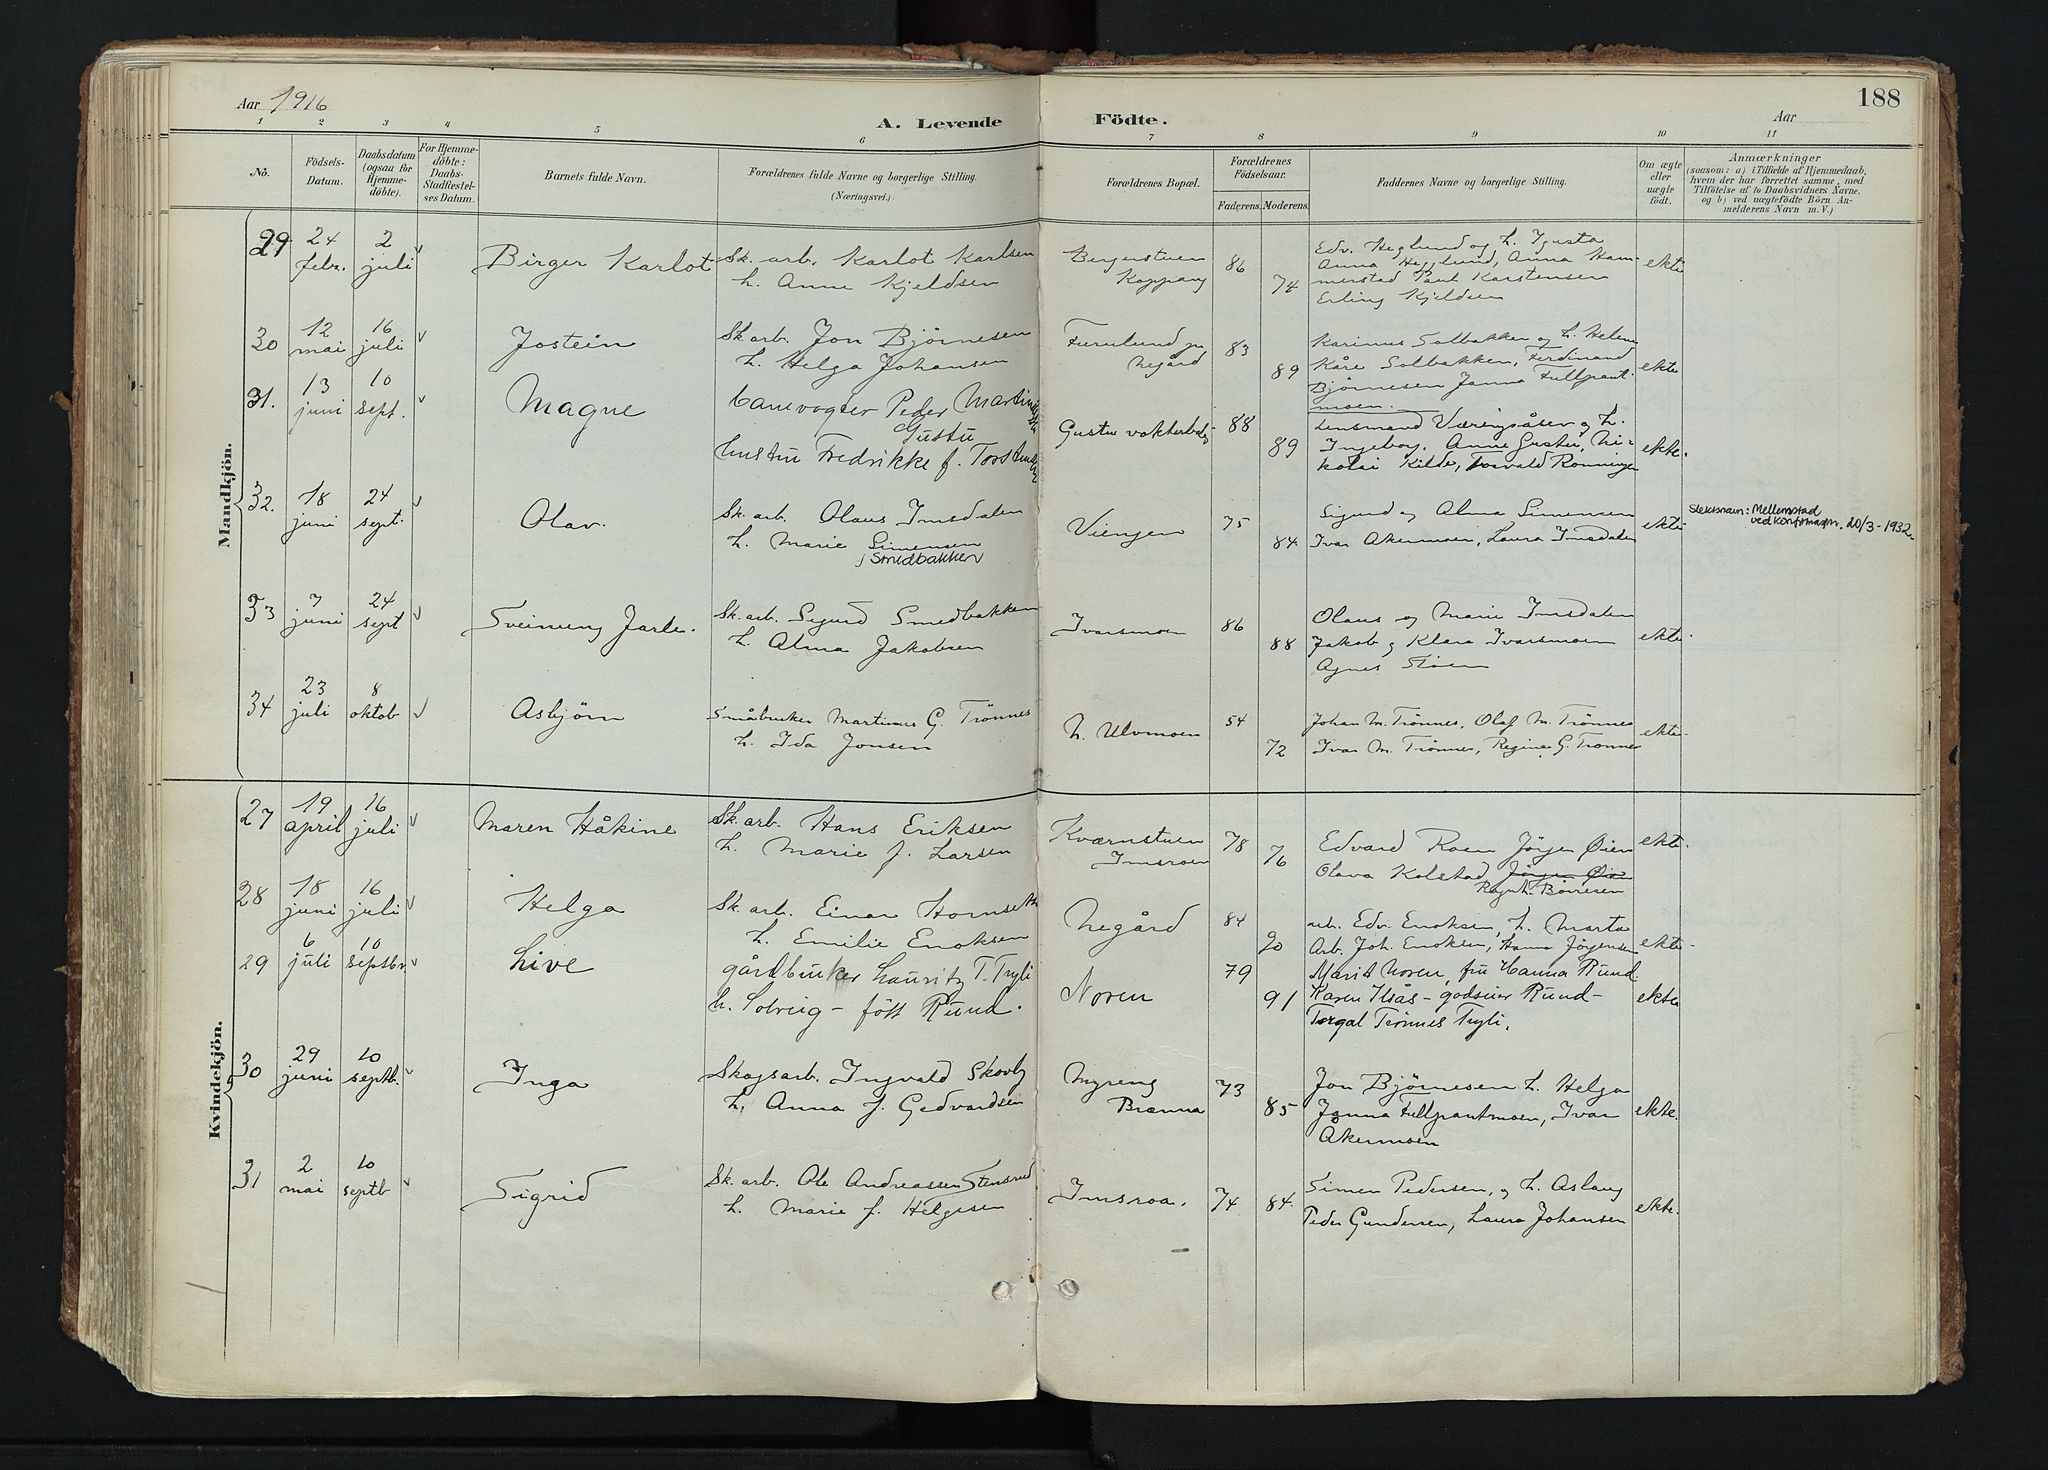 Aar 1916
A. Levende Födte.
Aar
188
1 2 3 4 5 6 7 8 9 10 11
No.
Födsels-Datum.
Daabsdatum (ogsaa for Hjemmedöbte).
For Hjemmedöbte: Daabs-Stadfæstelses Datum.
Barnets fulde Navn.
Forældrenes fulde Navne og borgerlige Stilling. (Næringsvei.)
Forældrenes Bopæl.
Forældrenes Födselsaar.
Faderens. Moderens.
Faddernes Navne og borgerlige Stilling.
Om ægte eller uægte födt.
Anmærkninger
(saasom: a) i Tilfælde af Hjemmedaab, hvem der har forrettet samme, med Tilföielse af to Daabsvidners Navne. og b) ved uægtefödte Börn Anmelderens Navn m. V.)
Mandkjön.
29 24 febr. 2 juli Birger Karlot
Sk. arb. Karlot Karlsen
h. Anne Kjeldsen
Bergerstuen Koppang 86 74
Edv. Heglund og h. Igusta
Anna Heglund, Anna Ham-
merstad Paul Karstensen
Erling Kjeldsen
ekte
30 12 mai 16 juli Jostein
Sk. arb. Jon Bjørnesen
h. Helga Johansen
Furulund negård 83 89
Karinus Solbakken og h. Helene
Kåre Solbakken, Ferdinand
Bjørnesen Janna Fullpant-
moen.
ekte
31. 13 juni 10 sept. Magne
banevogter Peder Martin
Gustu
hustru Fredrikke f. Torst
Gustu vokterbolig 88 89
Lensmand Væringsåsen og h.
Ingeborg. Anne Gustu, Ni-
kolai Kilde, Torvald Rønningen
ekte.
32. 18 juni 24 sept. Olav.
Sk. arb. Olaus Imsdalen
h. Marie Simensen
f Smedbakken
Viengen 75 84
Sigurd og Alma Simensen
Ivar Akermoen, Laura Imsdalen
ekte
Slektsnavn: Mellemstad
ved konfirmasjon. 20/3-1932.
33 7 juni 24 sept Sveinung Jarle.
Sk. arb. Sigurd Smedbakken
h. Alma Jakobsen
Ivarsmoen 86 88
Olaus og Marie Imsdalen
Jakob og Klara Ivarsmoen
Agnes Støen
ekte.
34 23 juli 8 oktob Asbjørn
Småbruker Martinus G. Trønnes
h. Ida Jonsen
N. Ulvmoen 54 72
Johan M. Trønnes, Olaf M. Trønnes
Ivar M. Trønnes, Regine G. Trønnes
ekte.
Kvindekjön.
27 19 april 16 juli Maren Håkine
Sk. arb. Hans Eriksen
h. Marie f. Larsen
Kværnstuen Imsroen 78 76
Edvard Roen Jørgen Øien
Olava Kolstad Jørgen Øien
Ragnh. Børresen
ekte.
28 18 juni 16 juli Helga
Sk. arb. Einar Hornseth
h. Emilie Enoksen
Negård 84 90
arb. Edv. Enoksen, h. Marta
Arb. Joh. Enoksen, Hanna Jørgensen
ekte
29 6 juli 10 septbr Live
gårdbruker Lauritz T. Tryli
h. Solveig - født Rund.
Noren 79 91
Marit Noren, fru Hanna Rund.
Karen Ilsås - godseier Rund -
Torgal Trønnes Tryli.
ekte
30 29 juni 10 septb. Inga
Skogsarb. Ingvald Skovly
h. Anna f. Gedvardsen
Myreng Brænna 73 85
Jon Bjørnesen h. Helga
Janna Fullpantmoen, Ivar
Åkermoen
ekte.
31 2 mai 10 septb Sigrid
Sk. arb. Ole Andreassen Stensrud
h. Marie f. Helgesen
Imsroa. 74 84.
Simen Pedersen, og h. Aslaug
Peder Gundersen, Laura Johansen
ekte.